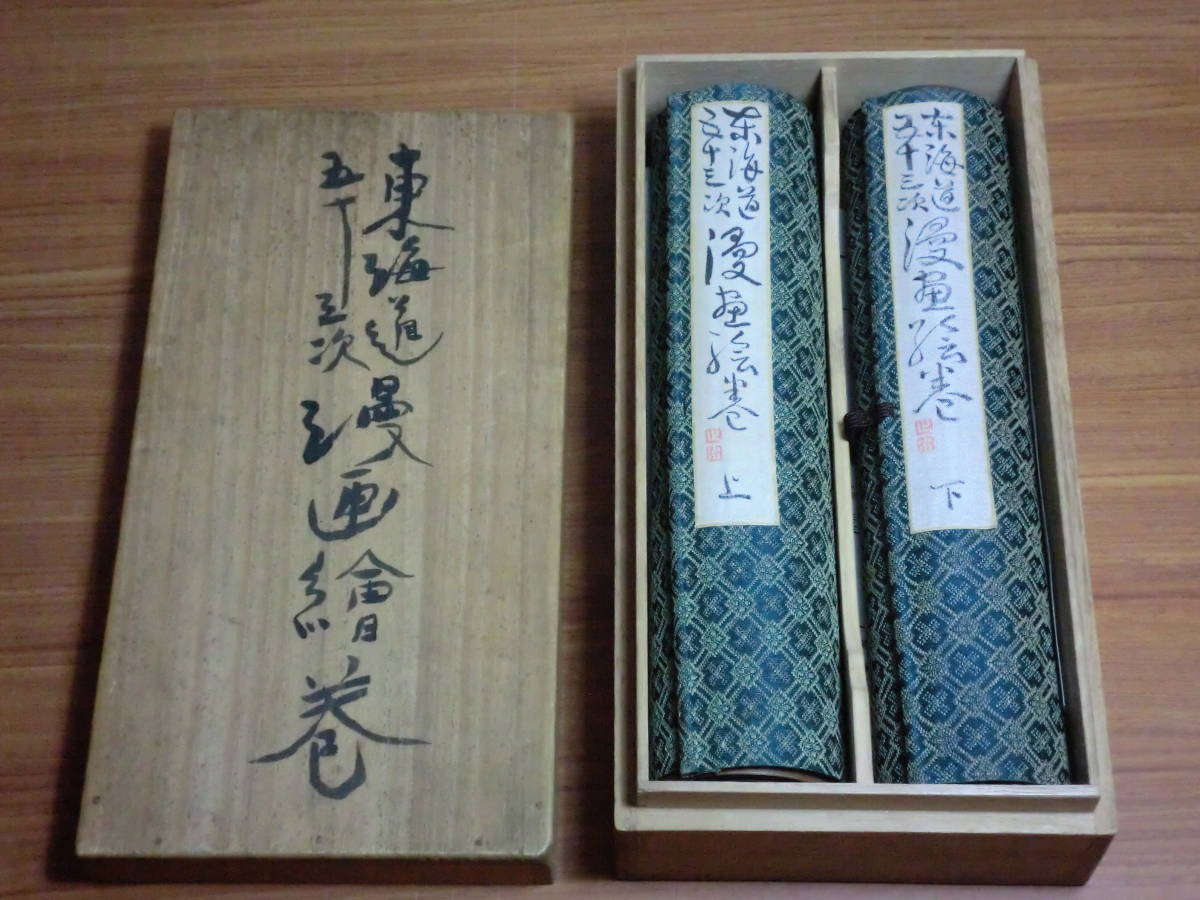 東海道
五十三次
漫画繪巻
东海道
五十三次
漫画絵巻
上
东海道
五十三次
漫画絵巻
下